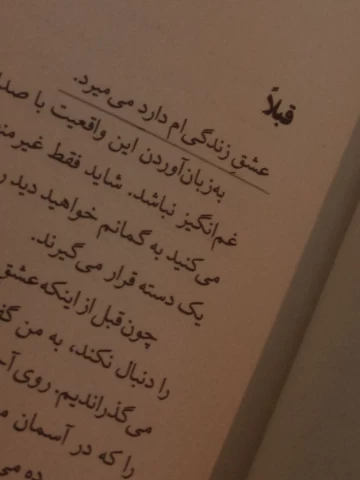 قبلاً
عشقِ زندگی‌ام دارد می‌میرد.
به‌زبان‌آوردن این واقعیت با
غم‌انگیز نباشد. شاید فقط
می‌کنید به گمانم خواهید دید
یک دسته قرار می‌گیرند.
چون قبل از اینکه عشق
را دنبال نکند، به من
می‌گذراندیم. روی
را که در آسمان